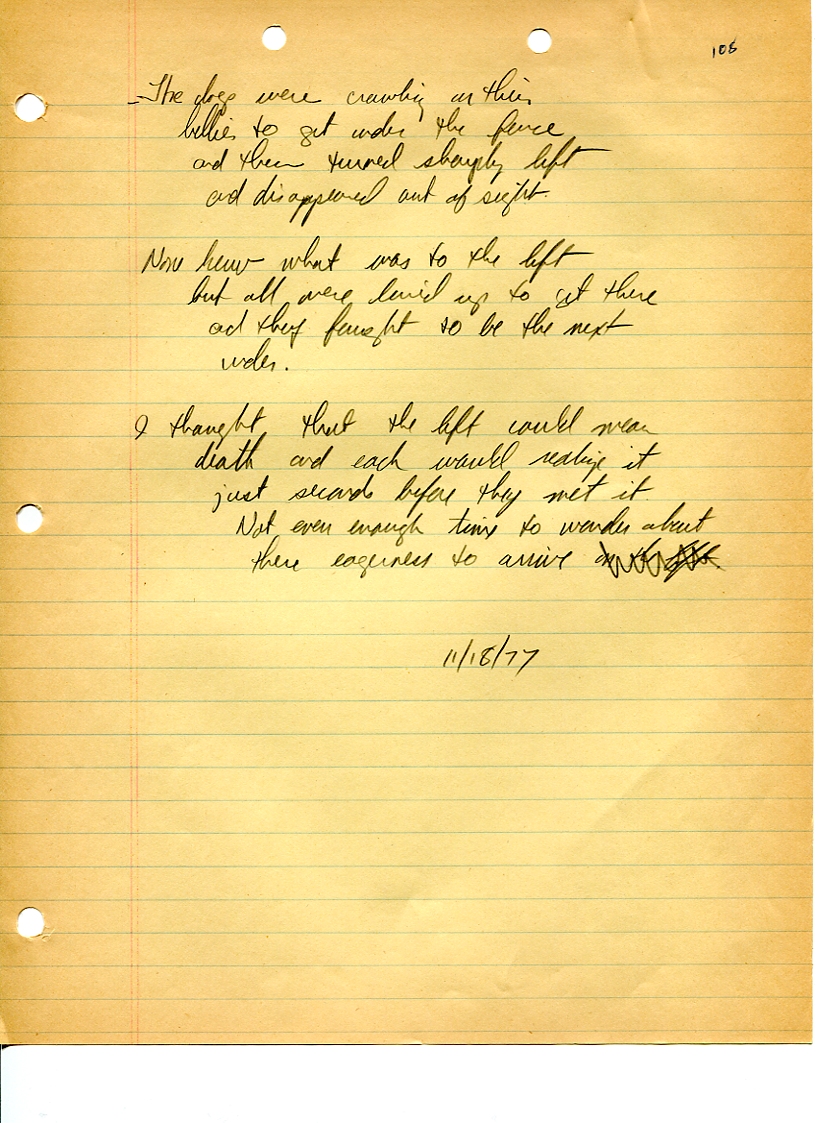 108
- The dogs were crawling on their
bellies to get under the fence
and then turned sharply left
and disappeared out of sight.
None knew what was to the left
but all were lined up to get there
and they fought to be the next
under.
I thought that the left could mean
death and each would realize it
just seconds before they met it
Not even enough time to wonder about
there eagerness to arrive
11/18/77